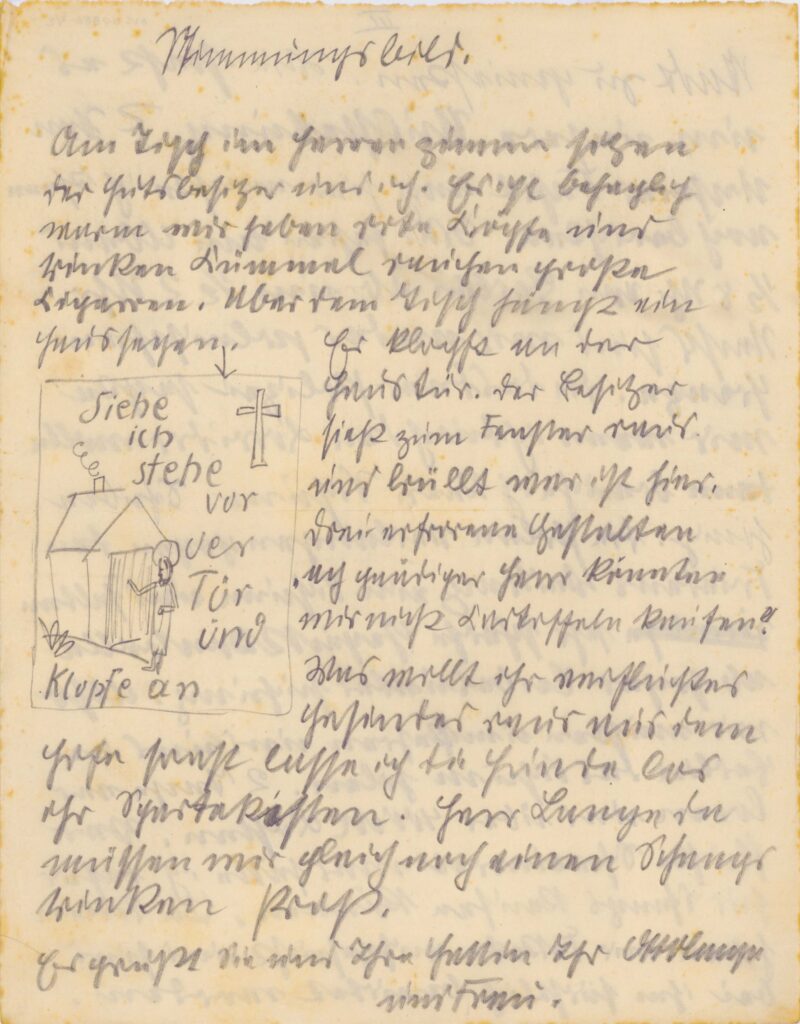 Stimmungsbild.
Am Tisch im Herrenzimmer sitzen
der Gutsbesitzer und ich. Es ist behaglich
warm wir haben rote Köpfe und
trinken Kümmel rauchen große
Cigarren. Über dem Tisch hängt ein
Haussegen.
Es klopft an der
Haustür. Der Besitzer
sieht zum Fenster raus.
und brüllt wer ist hier.
Drei erfrorene Gestalten
ach gnädiger Herr könnten
wir nicht Kartoffeln kaufen?
Was wollt ihr verfluchtes
Gesindel raus aus dem
Hofe sonst lasse ich die Hunde los
ihr Spartakisten. Herr Lange da
müssen wir gleich noch einen Schnaps
trinken Prost.
Es grüßt Sie und Ihre Gattin Ihr Otto Lange
und Frau.
Siehe
ich
stehe
vor
der
Tür
und
Klopfe an